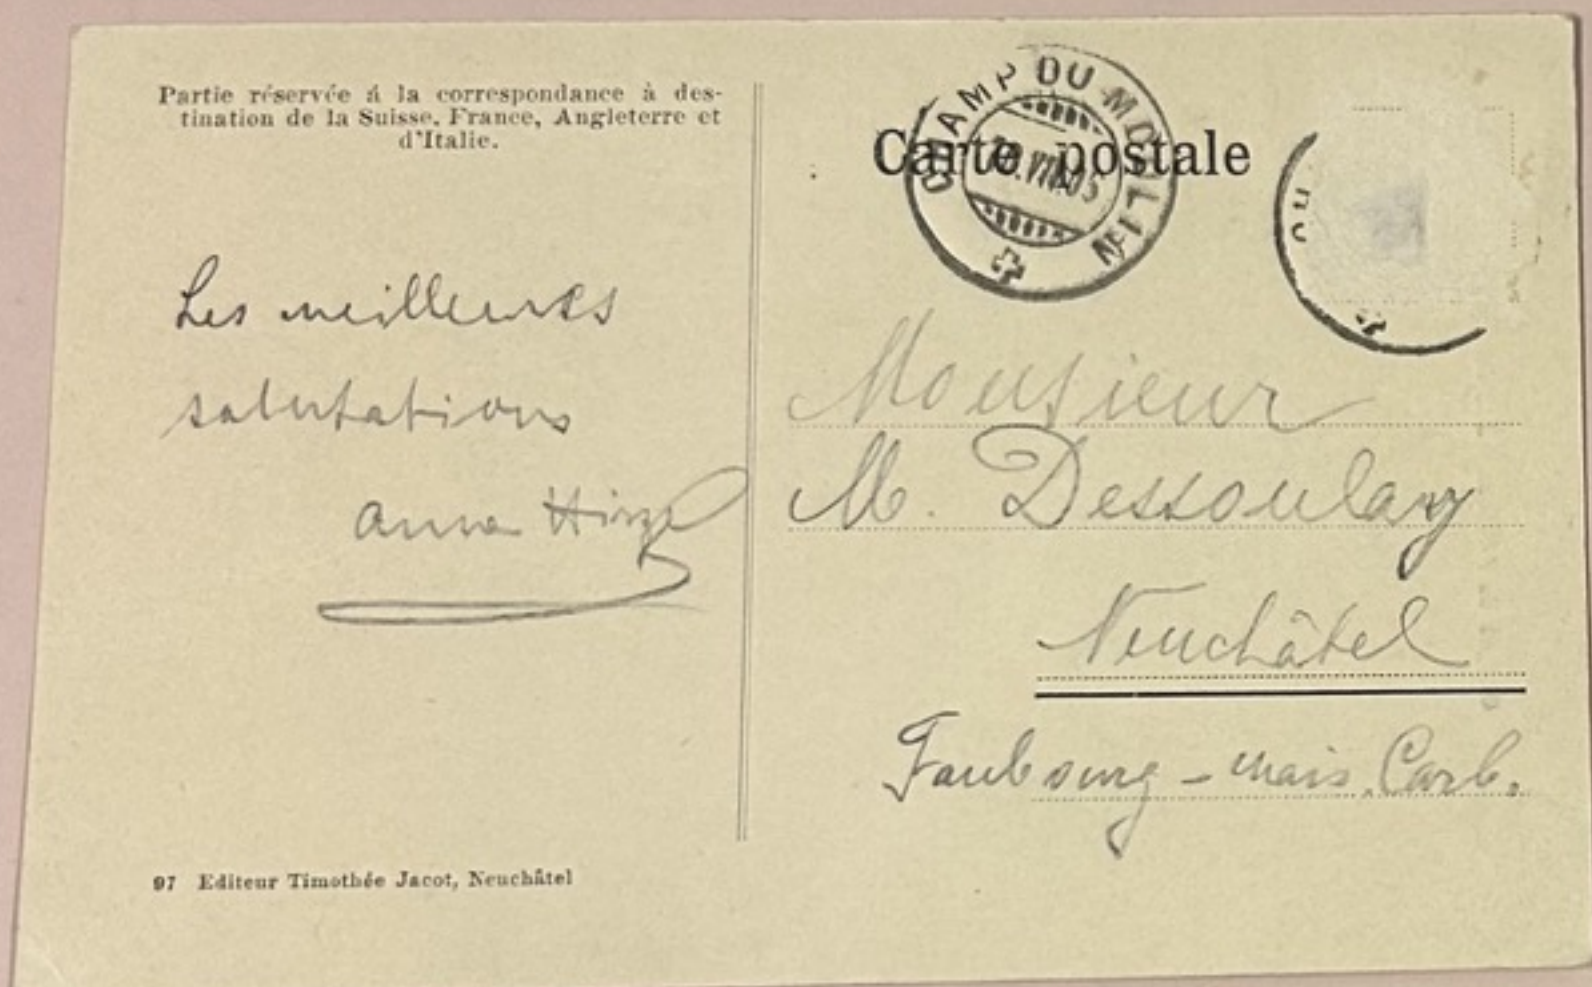 Partie réservée á la correspondance à des-
tination de la Suisse, France, Angleterre et
d'Italie.
Les meilleures
salutations
Anna
97 Editeur Timothée Jacot, Neuchâtel
CHAMP DU MOULIN
VIII.05
Carte postale
Monsieur
M. Dessoulavy
Neuchâtel
Faubourg - mais. Carb.